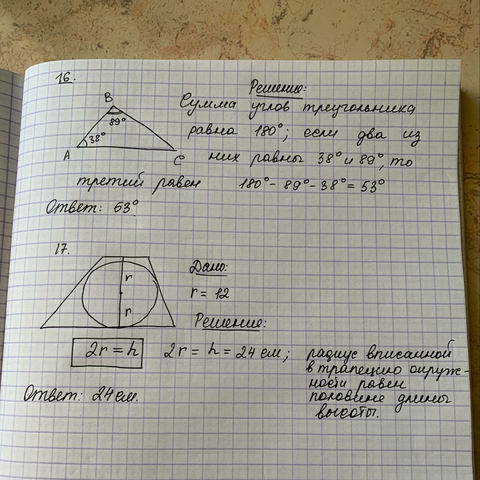 16.
Решение:
B
89°
38°
A
C
Сумма углов треугольника
равна 180°; если два из
них равны 38° и 89°, то
третий равен 180° - 89° - 38° = 53°
Ответ: 53°
17.
r
r
Дано:
r = 12
Решение:
2r = h
2r = h = 24 см;
радиус вписанной
в трапецию окруж-
ности равен
половине длины
высоты.
Ответ: 24 см.